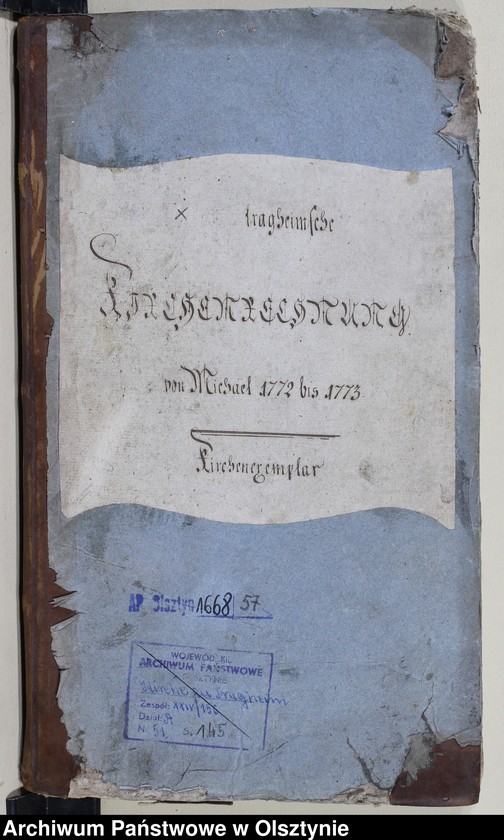 × tragheimsche
KIRCHENRECHNUNG.
von Michael 1772 bis 1773
Kirchenexemplar
AP Olsztyn 1668/57
WOJEWÓDZKIE
ARCHIWUM PAŃSTWOWE
Zespół: XXIV/156
Dział:
S. 145
Archiwum Państwowe w Olsztynie